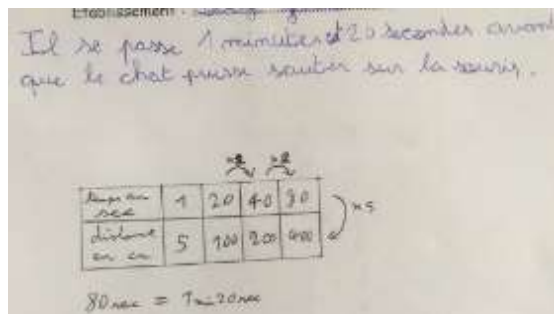 Etablissement :
Il se passe 1 minutes et 20 secondes avant
que le chat puisse sauter sur la souris.
×2 ×2
temps en sec 1 20 40 80
×5
distance en cm 5 100 200 400
80 sec = 1 min 20 sec